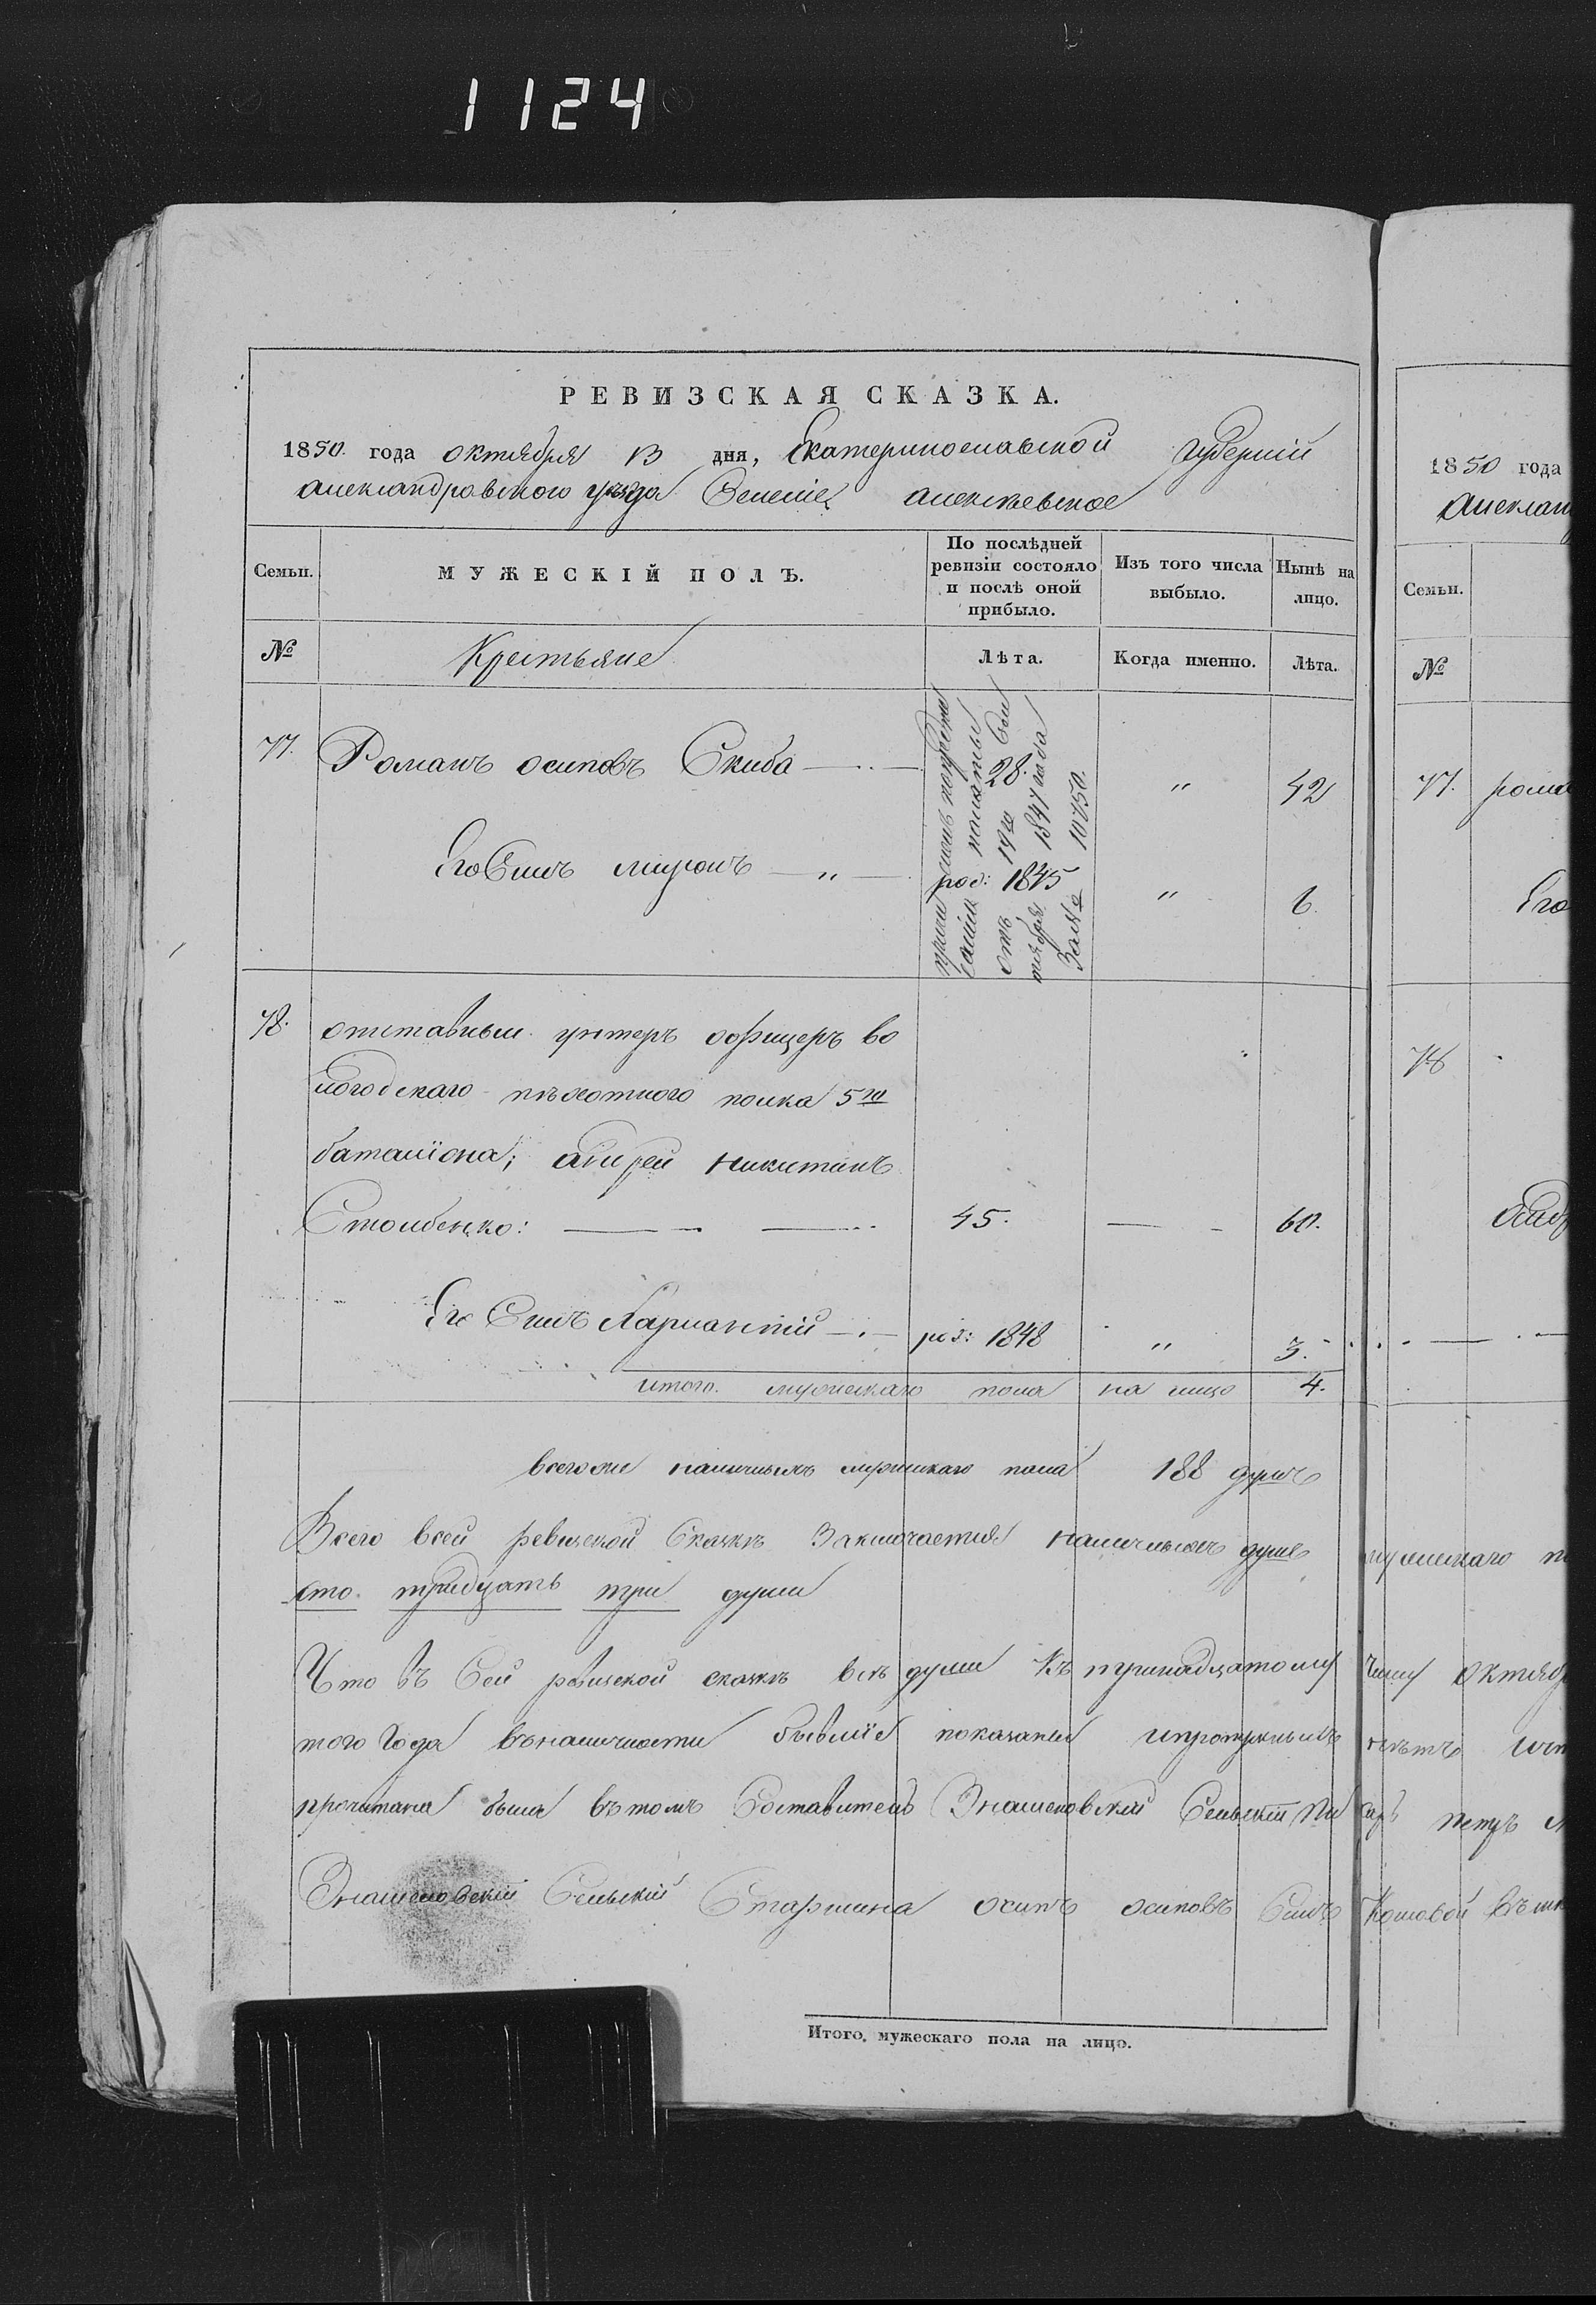 1124
РЕВИЗСКАЯ СКАЗКА.
1850. года октября 13 дня, Екатеринославской губернiи
александровского уезда Селенiе алексѣевское
Семьи.
МУЖЕСКIЙ ПОЛЪ.
По послѣдней ревизiи состояло и послѣ оной прибыло.
Изъ того числа выбыло.
Нынѣ на лицо.
№
Крестьяне
Лѣта.
Когда именно.
Лѣта.
77. Романъ осиповъ Скиба 28. " 42
отъ 19го 1847 года
за № 10750.
Его Сынъ миронъ " род: 1845 " 6.
78. отставный унтеръ оофицеръ во
логодскаго пѣхотного полка 5го
баталiона; андрей никитинъ
Столбенко: 45. 60.
Его Сынъ Лармантiй род: 1848 " 3.
итого. мужескаго пола на лицо 4.
всего же наличныхъ мужескаго пола 188 душъ
Всего всей ревизской Сказкѣ Заключается наличныхъ душъ
сто. тридцать три души
Что въ Сей ревизской сказкѣ всѣ души Къ тринадцатому
того Года въ наличности бывшiе показаны ипропускныхъ
прочитана была въ томъ Составитель Знаменовский Сельскiй Пи
Знаменовскiй Сельскiй Старшина осипъ осиповъ Сынъ
Итого, мужескаго пола на лицо.
1850 года
Александ
Семьи.
№
77. рома
Его
78
мужескаго п
Числу октяб
нѣтъ
сарь петръ
Кошовой въ